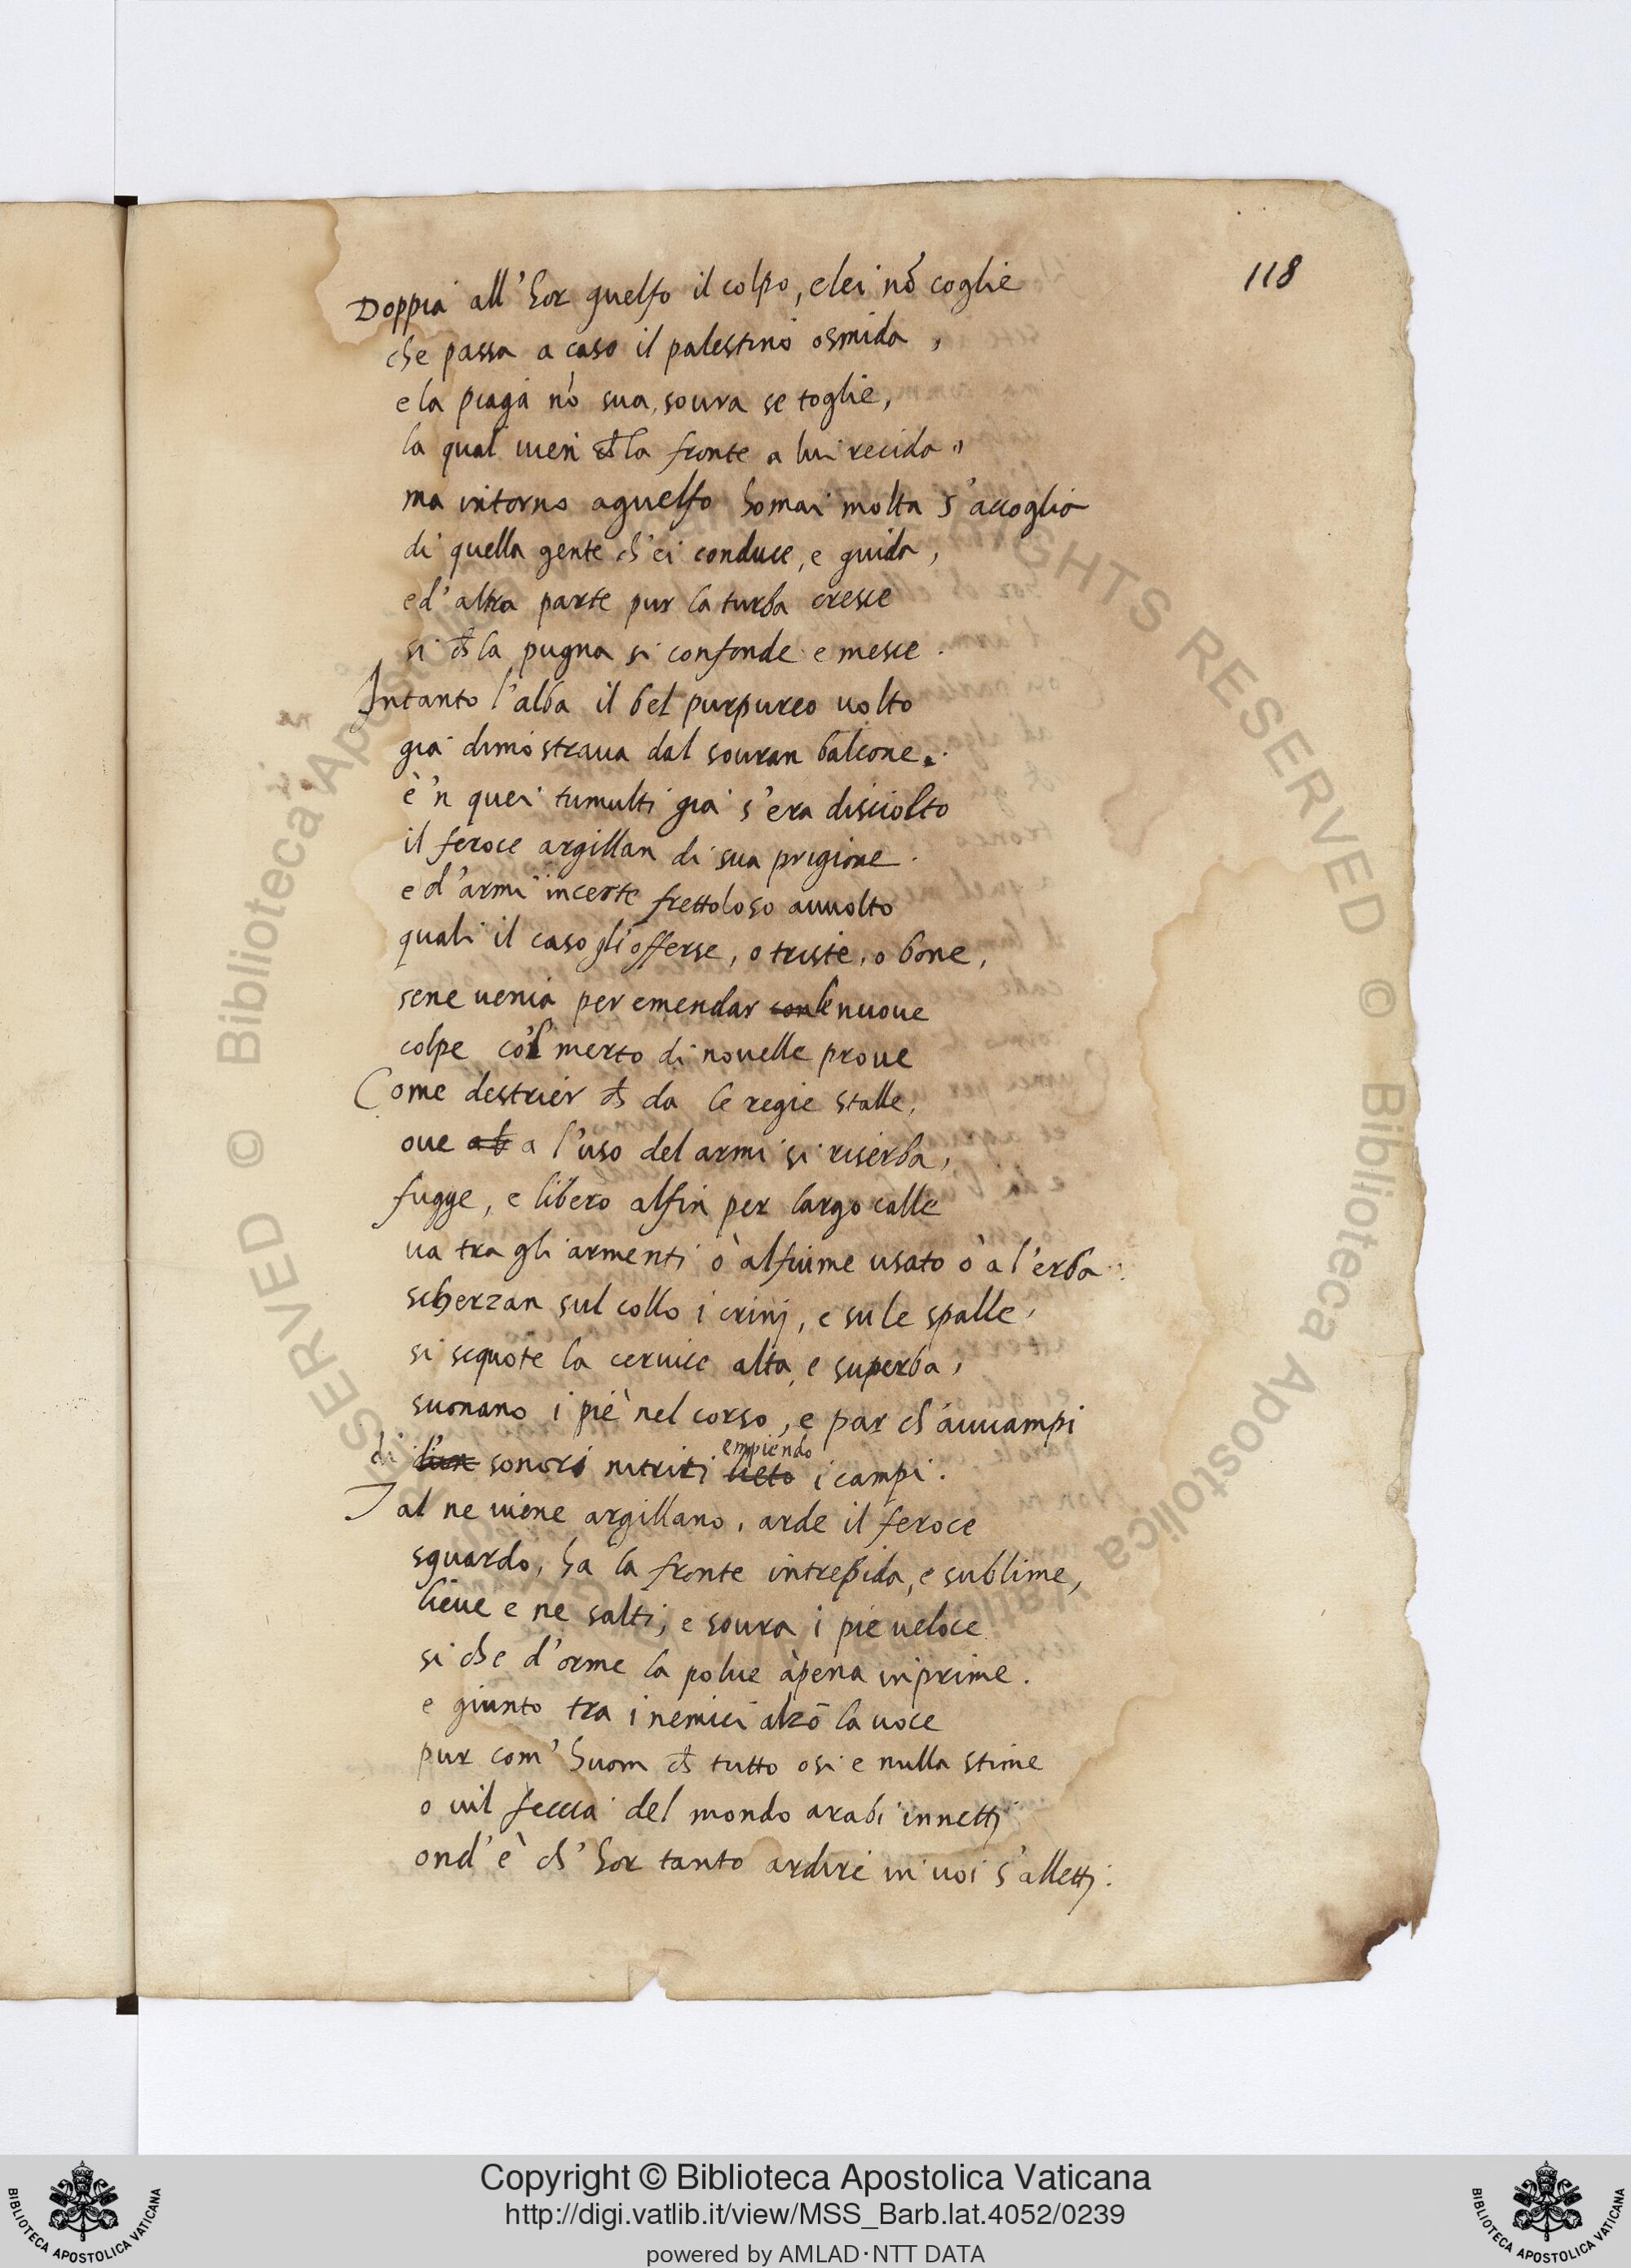 118
Doppia all'hor guelfo il colpo, e lei nõ coglie
che passa a caso il palestino osmida,
e la piaga nõ sua, soura se toglie,
la qual uien ch la fronte a lui recida,
ma intorno a guelfo homai molta s'accoglie
di quella gente ch'ei conduce, e guida,
ed'altra parte pur la turba cresce
si ch la pugna si confonde e mesce.
Intanto l'alba il bel purpureo uolto
gia dimostraua dal souran balcone.
è'n quei tumulti gia s'era disciolto
il feroce argillan di sua prigione.
e d'armi incerte frettoloso auuolto
quali il caso gli offerse, o triste, o bone,
sene uenia per emendar con le nuoue
colpe co'l merto di nouelle proue
Come destrier ch da le regie stalle,
oue al a l'uso del armi si riserba,
fugge, e libero alfin per largo calle
ua tra gli armenti ò al fiume usato ò à l'erba
scherzan sul collo i crinj, e su le spalle,
si scquote la ceruice alta, e superba,
suonano i piè nel corso, e par ch'auuampi
empiendo
di sonori nitriti lieto i campi.
Tal ne uiene argillano, arde il feroce
sguardo, ha la fronte intrepida, e sublime,
lieue e ne salti, e soura i pie ueloce
si che d'orme la polue àpena inprime.
e giunto tra i nemici alzò la uoce
pur com' huom ch tutto osi e nulla stime
o uil feccia del mondo arabi innettj
ond'è ch'hor tanto ardire in uoi s'allettj.
Copyright © Biblioteca Apostolica Vaticana
http://digi.vatlib.it/view/MSS_Barb.lat.4052/0239
powered by AMLAD·NTT DATA
BIBLIOTECA APOSTOLICA VATICANA
BIBLIOTECA APOSTOLICA VATICANA